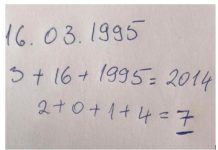 16.03.1995
3 + 16 + 1995 = 2014
2+0+1+4 = 7